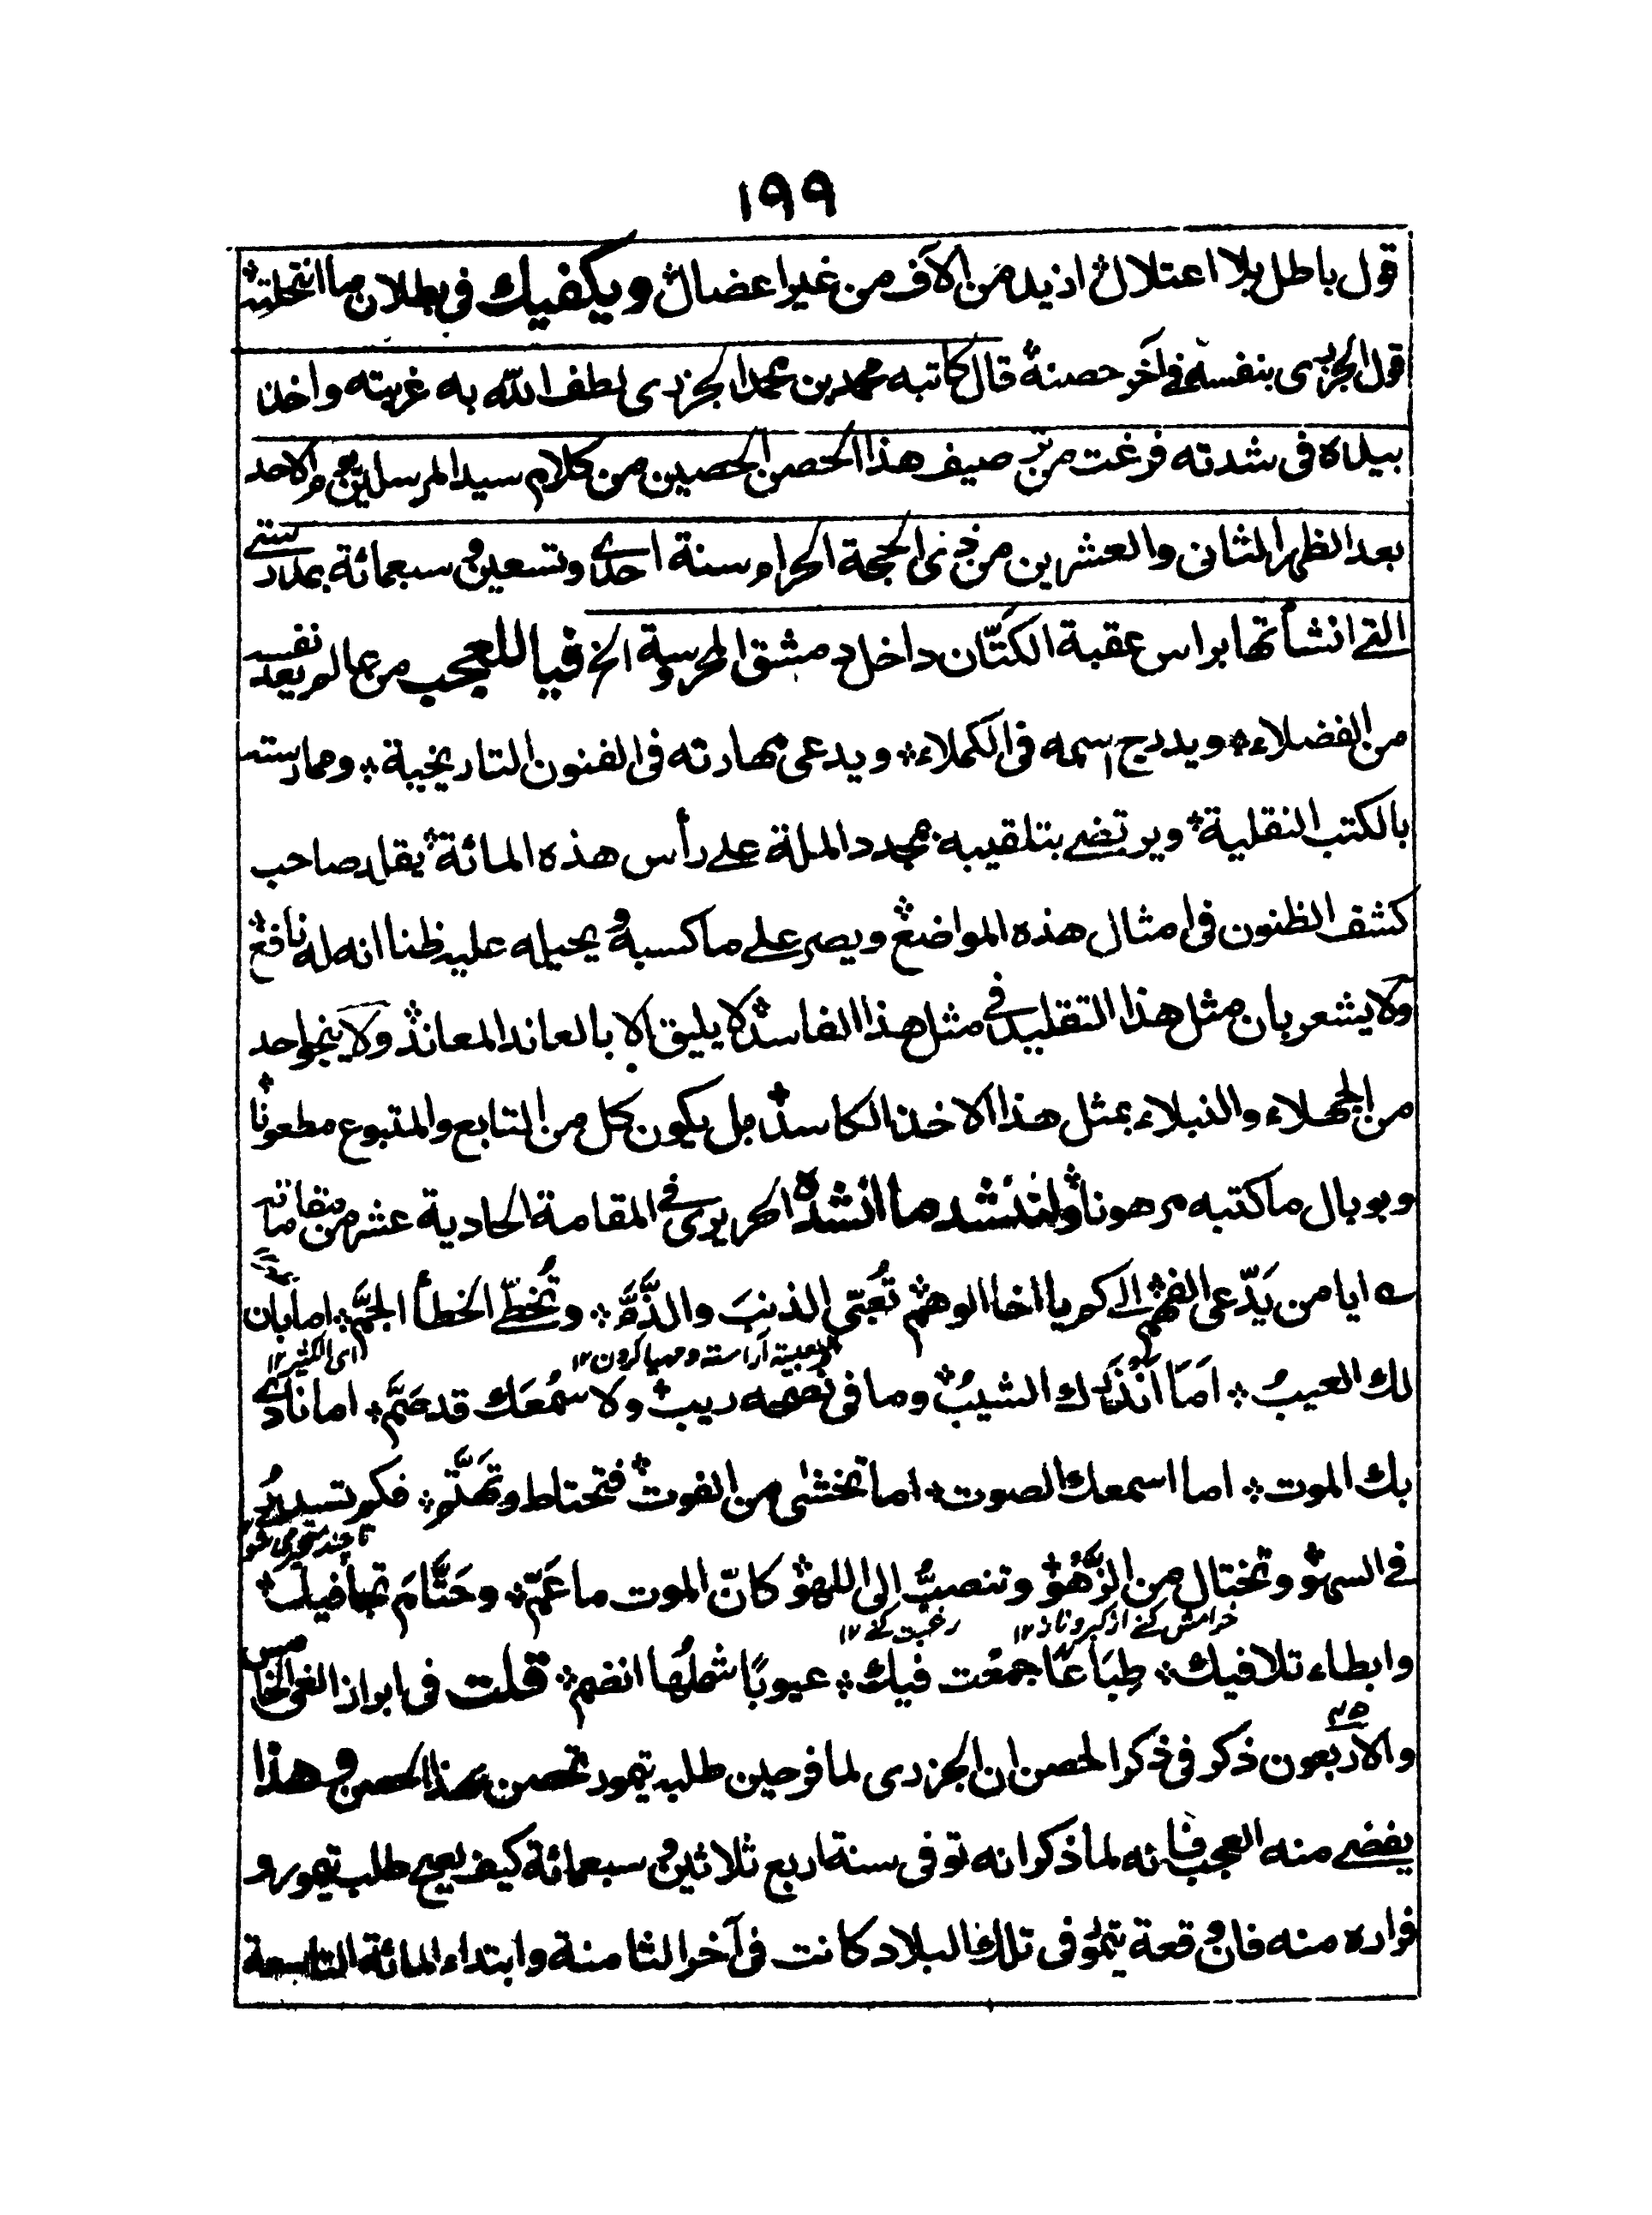 ١٩٩
قول باطل بلا اعتلال ازيد من الآف من غير اعضال ويكفيك في بطلان ما انتحلته
قول الجزرى بنفسه فى آخر حصنه قال كاتبه محمد بن محمد الجزرى لطف الله به غربته واخذ
بيداه فى شدته فرغت من ترصيف هذا الحصن الحصين من كلام سيد المرسلين يوم الاحد
بعد الظهر الثانى والعشرين من ذى الحجة الحرام سنة احدى وتسعين وسبعمائة بمدرستى
التى انشأتها براس عقبة الكتّان داخل دمشق المحروسة الخ فيا للعجب من عالم يعد نفسه
من الفضلاء ويدرج اسمه فى الكملاء ويدعى مهارته فى الفنون التاريخية وممارسته
بالكتب النقلية ويرتضى بتلقيبه بمجدد الملة على رأس هذه المائة يقلد صاحب
كشف الظنون فى امثال هذه المواضع ويصر على ما كسبه ويحيله عليه ظنا انه له نافع
ولا يشعر بان مثل هذا التقليد فى مثل هذا الفاسد لا يليق الا بالعاند المعاند ولا ينجو احد
من الجهلاء والنبلاء بمثل هذا الاخذ الكاسد بل يكون كل من التابع والمتبوع مطعونا
وبوبال ما كتبه مرهونا ولننشد ما انشده الحريرى فى المقامة الحادية عشر من مقاماته
ايا من يَدّعى الفهم الى كم يا اخا الوهم تُعَبّى الذنبَ والذَّمَّ وتُخطّى الخطأ الجَمَّ اما بان
لك العيبُ اَمَا اَنذَرك الشيبُ وما فى نصحه ريب ولا سمعَك قد صَمَّ اما نادى
التعبية آراسته ومهيا كردن ١٢ اى الكثير ١٢
بك الموت اما اسمعك الصوت اما تخشى من الفوت فتحتاط وتهتَمّ فكم تسدرُ
تا چند متحير مى شو
فى السهو وتختال من الزَّهْو وتنصبُّ الى اللهو كانّ الموت ما عَمّ وحَتَّامَ تجافيك
خرامش كنى از كبر و ناز ١٢ رغبت كنى ١٢
وابطاء تلافيك طِبَاعًا جمعت فيك عيوبًا شملُها انضم قلت فى ابراز الغى الخامس
والاربعون ذكر فى ذكر الحصن ان الجزرى لما فر حين طلبه تيمور تحصن بهذا الحصن وهذا
يفضى منه العجب فانه لما ذكر انه توفى سنة اربع ثلاثين وسبعمائة كيف يصح طلب تيمور و
فراره منه فان وقعة تيمور فى تلك البلاد كانت فى آخر الثامنة وابتداء المائة التاسعة